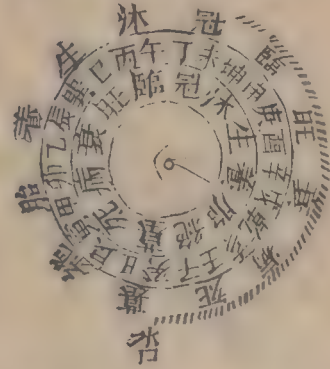 沐冠臨旺衰病死墓絕胎養生
丙午丁未坤申庚酉辛戌乾亥壬子癸丑艮寅甲卯乙辰巽巳
臨冠沐生養胎絕墓死病衰旺
水口